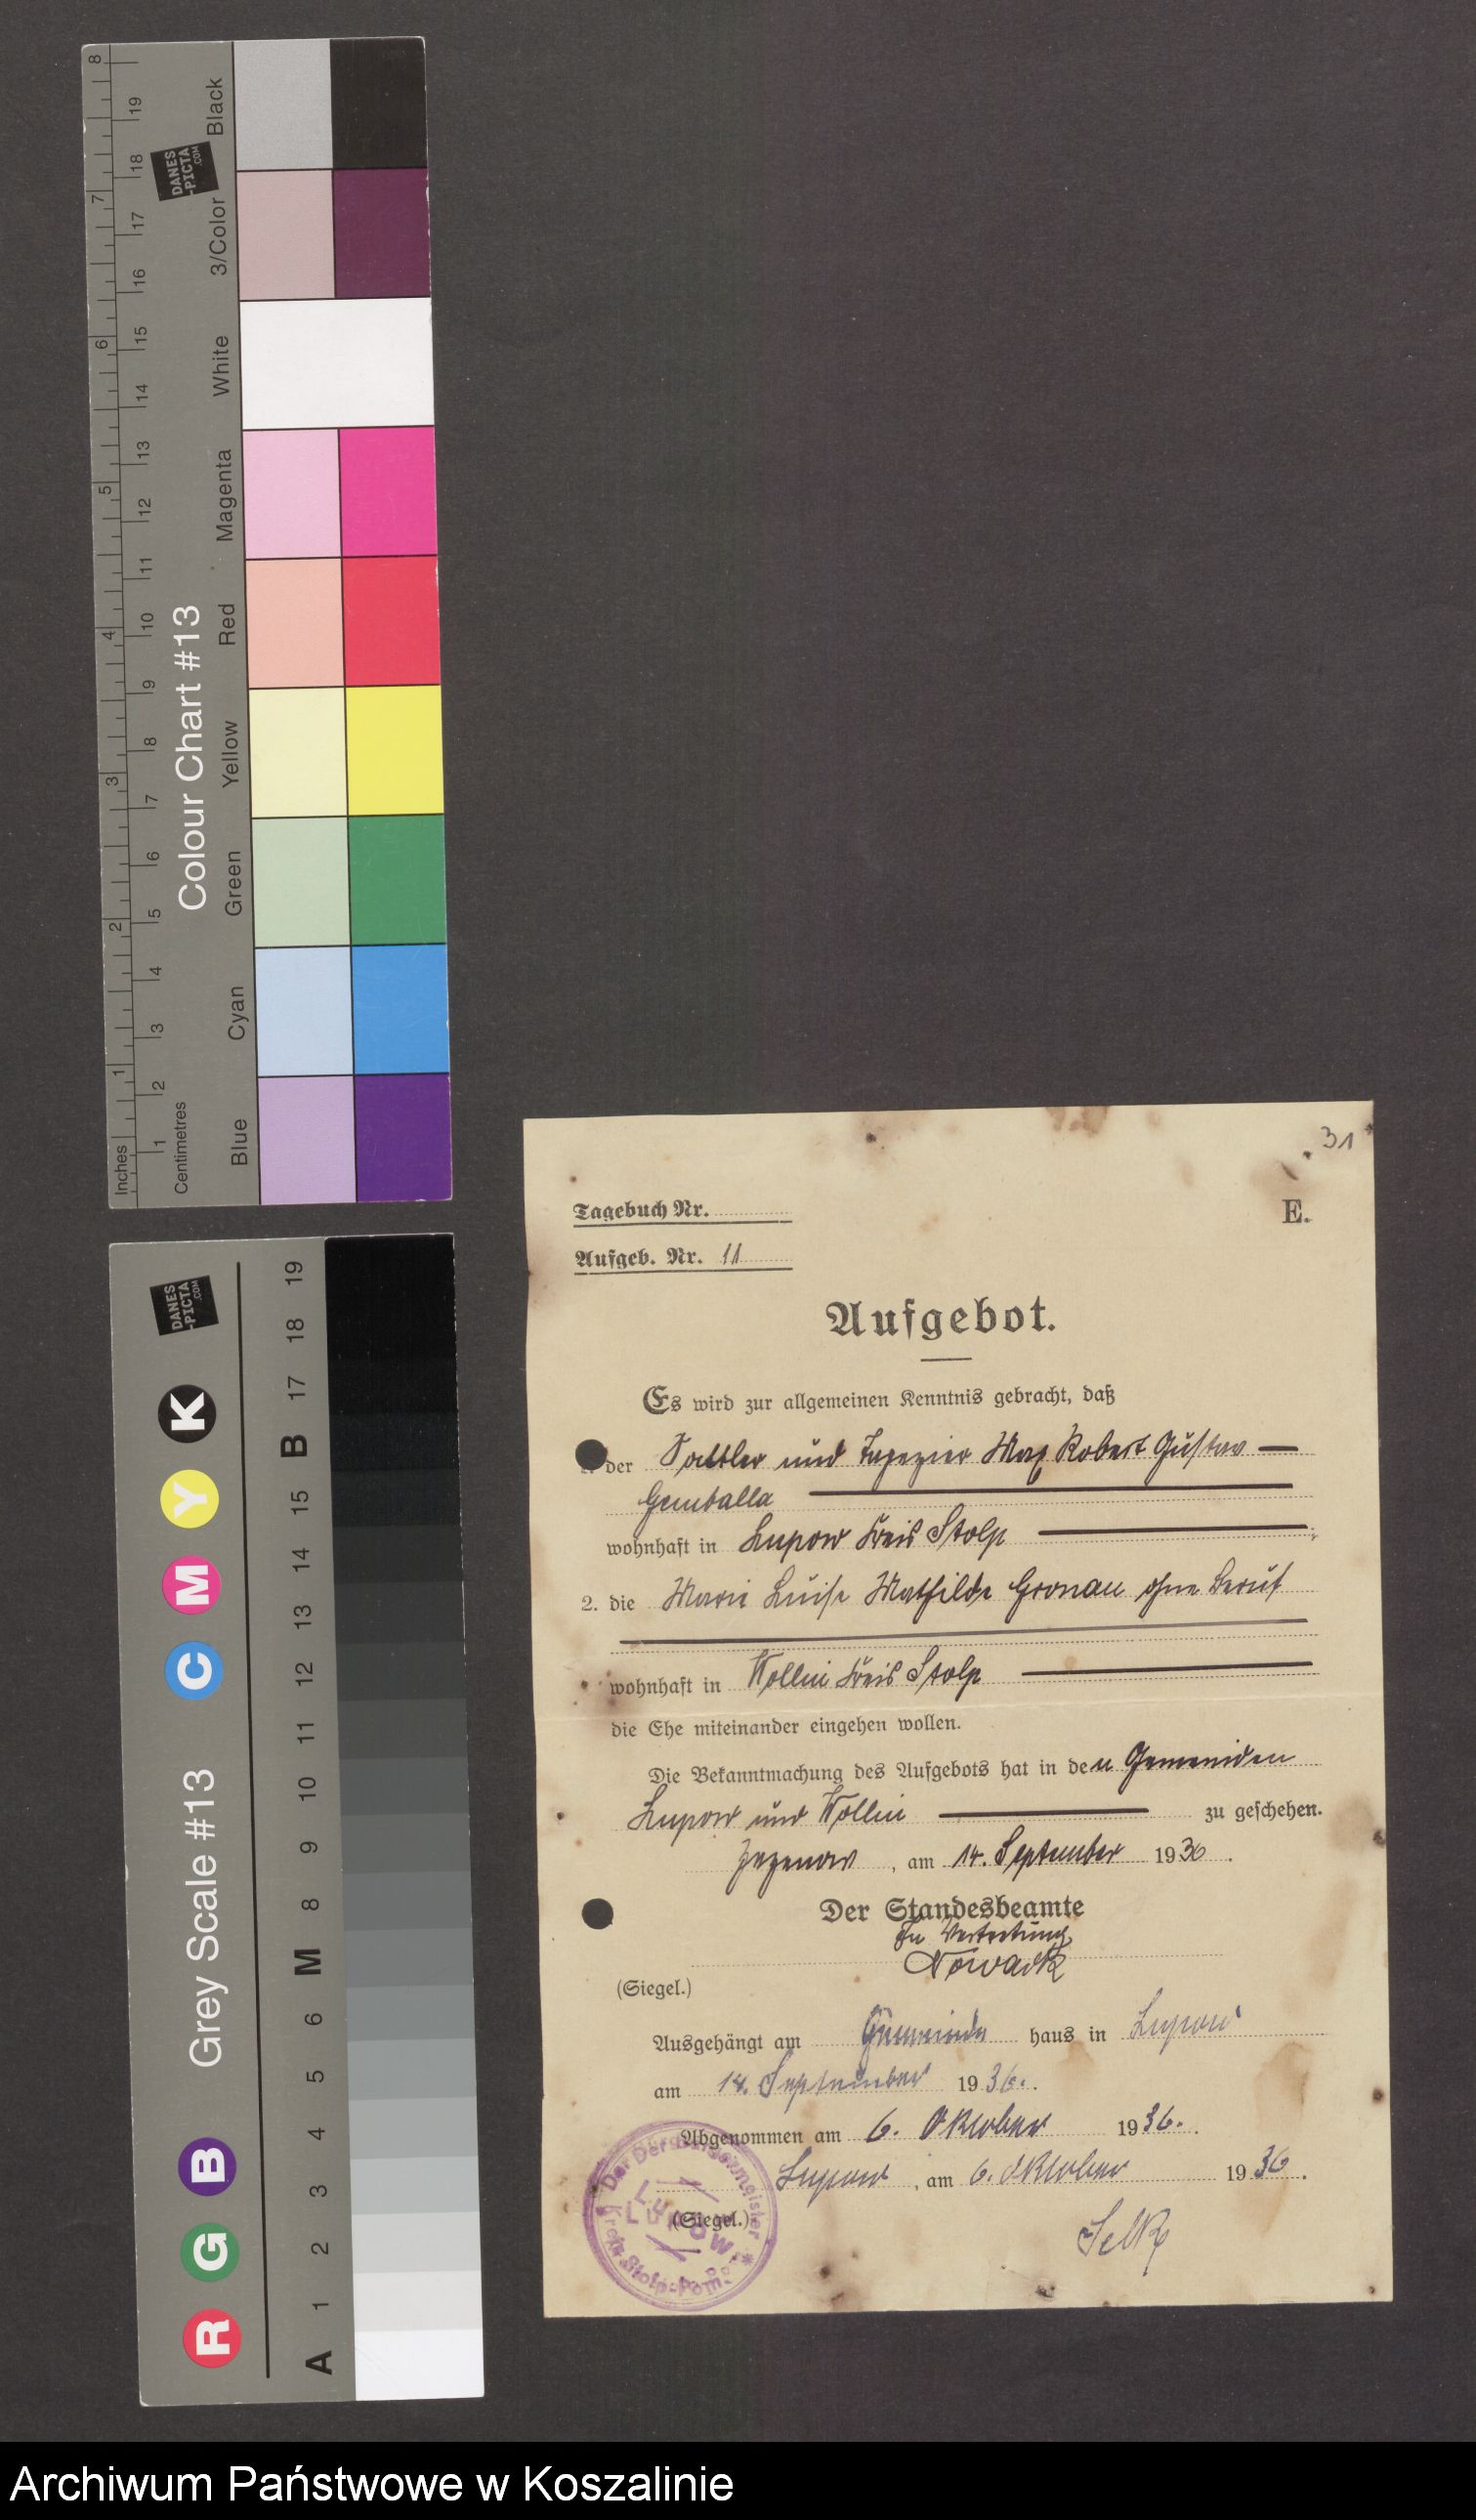 8 7 6 5 4 3 2 1 Inches
19 18 17 16 15 14 13 12 11 10 9 8 7 6 5 4 3 2 1 Centimetres
DANES
-PICTA
.COM
Colour Chart #13
Blue Cyan Green Yellow Red Magenta White 3/Color Black
DANES
-PICTA
.COM
Grey Scale #13
R G B C M Y K
A 1 2 3 4 5 6 M 8 9 10 11 12 13 14 15 B 17 18 19
31
Tagebuch Nr.
E.
Aufgeb. Nr. 11
Aufgebot.
Es wird zur allgemeinen Kenntnis gebracht, daß
der Sattler und Tapezier Max Robert Gustav
Gemballa
wohnhaft in Lupow Kreis Stolp ;
2. die Marie Luise Mathilde Gronau ohne Beruf
wohnhaft in Wollin Kreis Stolp
die Ehe miteinander eingehen wollen.
Die Bekanntmachung des Aufgebots hat in den Gemeinden
Lupow und Wollin zu geschehen.
Zezenow, am 14. September 1936.
Der Standesbeamte
In Vertretung
Nowack
(Siegel.)
Ausgehängt am Gemeinde haus in Lupow
am 14. September 1936.
Abgenommen am 6. Oktober 1936.
Lupow, am 6. Oktober 1936.
(Siegel.)
Der Bürgermeister
Lupow
Kreis Stolp-Pom.
Selk
Archiwum Państwowe w Koszalinie